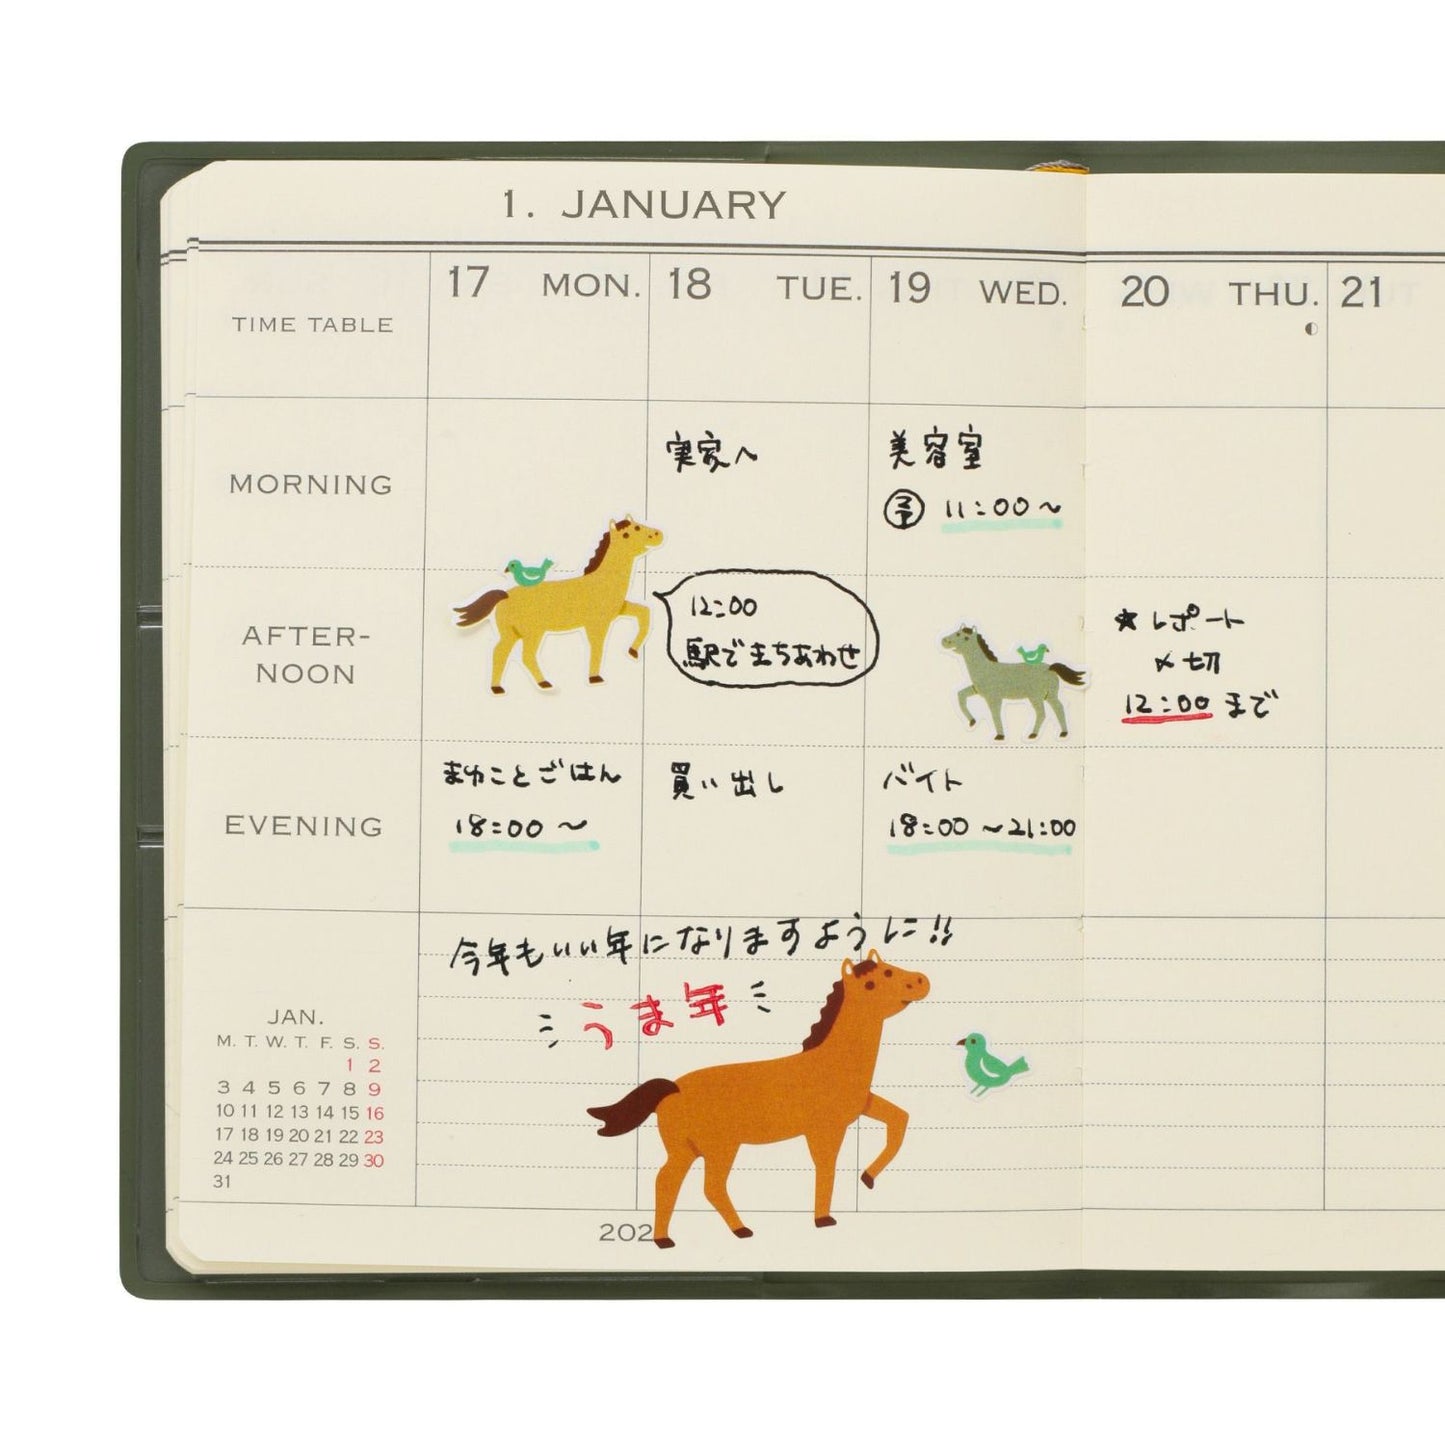 1. JANUARY
TIME TABLE
17 MON.
18 TUE.
19 WED.
20 THU.
21
MORNING
実家へ
美容室
予 11:00〜
AFTER-
NOON
12:00
駅でまちあわせ
★レポート
〆切
12:00まで
EVENING
まゆことごはん
18:00〜
買い出し
バイト
18:00〜21:00
今年もいい年になりますように!!
うま年
JAN.
M. T. W. T. F. S. S.
1 2
3 4 5 6 7 8 9
10 11 12 13 14 15 16
17 18 19 20 21 22 23
24 25 26 27 28 29 30
31
202